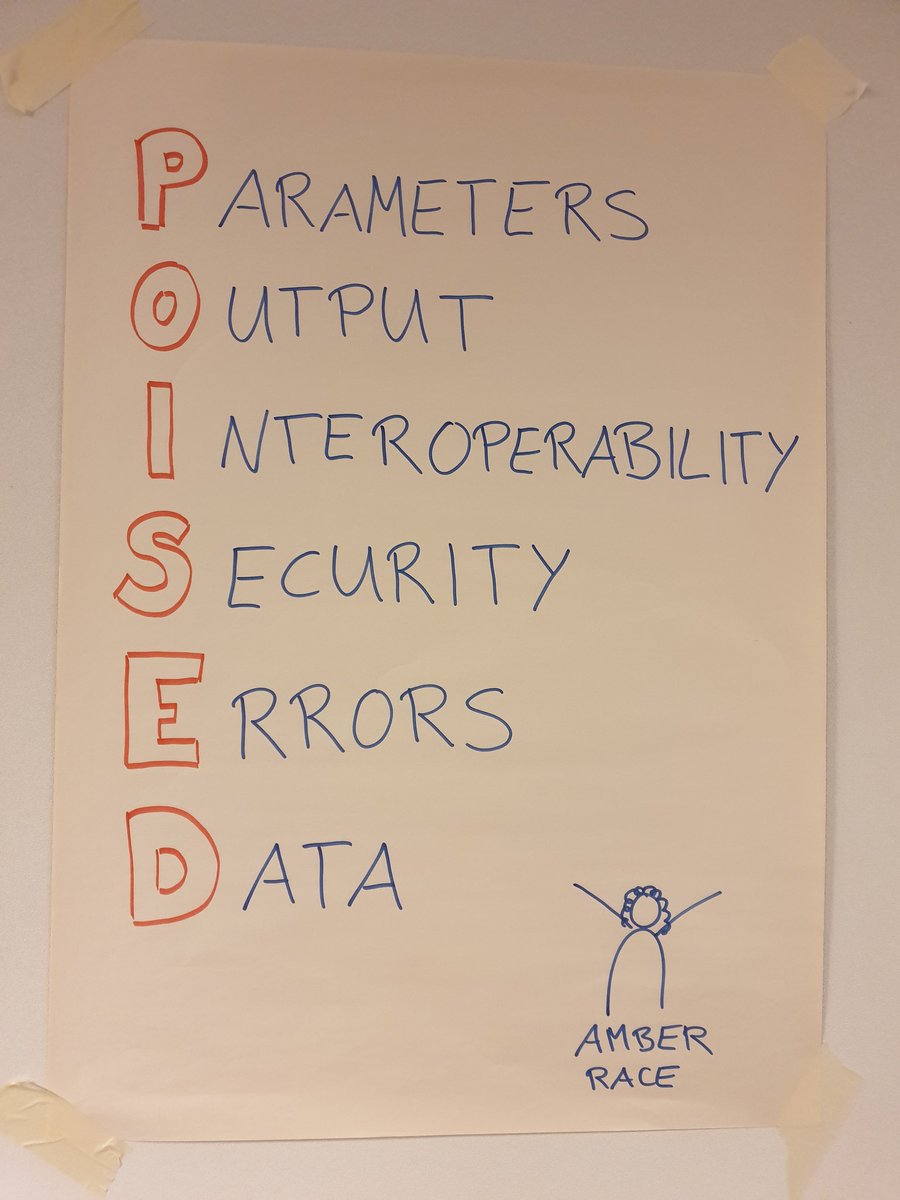 PARAMETERS
OUTPUT
INTEROPERABILITY
SECURITY
ERRORS
DATA
AMBER
RACE